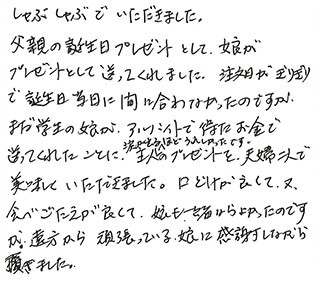 しゃぶしゃぶでいただきました。
父親の誕生日プレゼントとして、娘が
プレゼントとして送ってくれました。注文日がギリギリ
で誕生日当日に間に合わなかったのですが、
まだ学生の娘が、アルバイトで得たお金で
涙が出るほどうれしかったです。
送ってくれたことに、主人のプレゼントを、夫婦二人で
美味しくいただきました。口どけが良くて、又、
食べごたえが良くて、娘も一緒ならよかったのです
が、遠方から頑張っている娘に感謝しながら
頂きました。